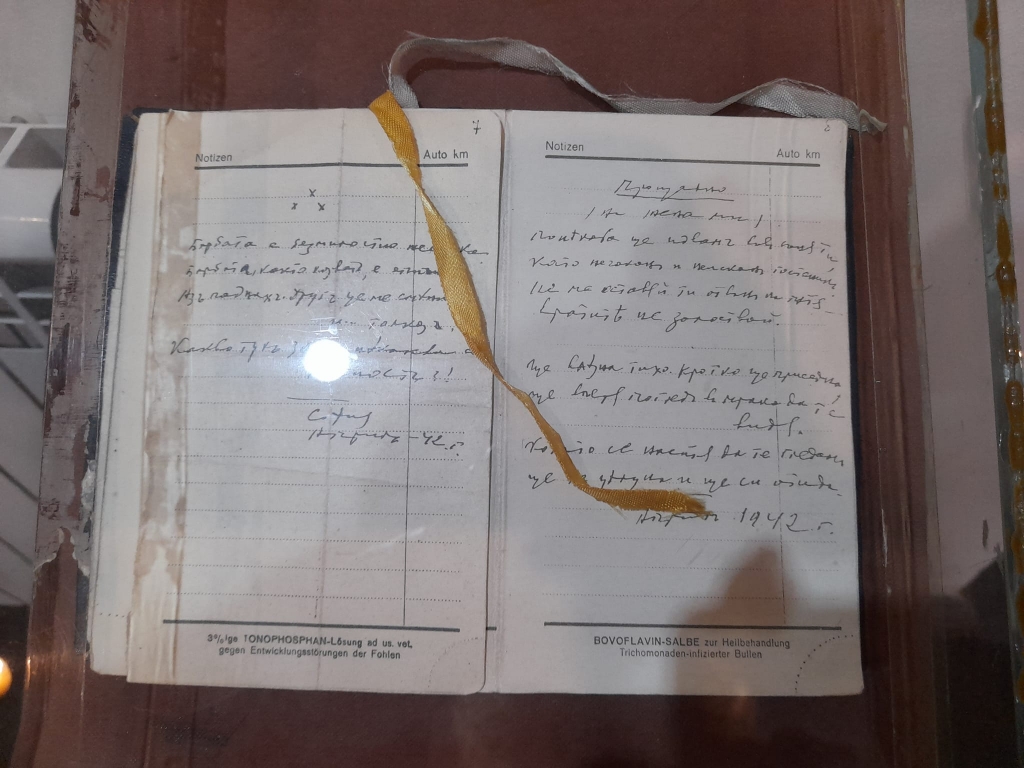 7
Notizen Auto km
x
x x
Борбата е безмилостно жестока
борбата, както казват, е епич
Азъ паднахъ. Другъ ще ме смени
и толкоз.
Какво тукъ з някаква с
ность!
Априлъ - 42 г.
3%ige TONOPHOSPHAN-Lösung ad us. vet.
gegen Entwicklungsstörungen der Fohlen
8
Notizen Auto km
Прощално
/ на жена ми /
Понякога ще идвамъ във съня ти
като нечаканъ и неисканъ гостенинъ
Не ме оставяй ти отвънъ на пътя -
Вратите не залоствай.
Ще влезна тихо. Кротко ще приседна,
ще вперя погледъ въ мрака да те
видя.
Когато се наситя да те гледамъ
ще целуна и ще си отида.
Априлъ 1942 г.
BOVOFLAVIN-SALBE zur Heilbehandlung
Trichomonaden-infizierter Bullen